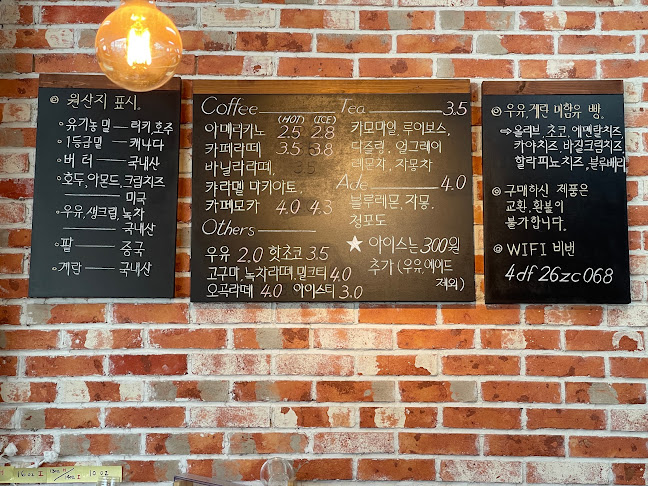 ◎ 원산지 표시.
○유기농 밀 — 터키, 호주
○1등급밀 — 캐나다
○버터 — 국내산
○호두, 아몬드, 크림치즈
— 미국
○우유, 생크림, 녹차
— 국내산
○팥 — 중국
○계란 — 국내산
Coffee
(HOT) (ICE)
아메리카노 2.5 2.8
카페라떼 3.5 3.8
바닐라라떼,
카라멜 마키아토,
카페모카 4.0 4.3
Others
우유 2.0 핫초코 3.5
고구마, 녹차라떼, 밀크티 4.0
오곡라떼 4.0 아이스티 3.0
Tea 3.5
카모마일, 루이보스,
다즐링, 얼그레이
레몬차, 자몽차
Ade 4.0
블루레몬, 자몽,
청포도
★ 아이스는 300원
추가 (우유, 에이드
제외)
◎ 우유, 계란 미함유 빵.
⇒올리브, 초코, 에멘탈치즈
카야치즈, 바질크림치즈
할라피노치즈, 블루베리
◎ 구매하신 제품은
교환, 환불이
불가합니다.
◎ WIFI 비번
4df26zc068
10.02